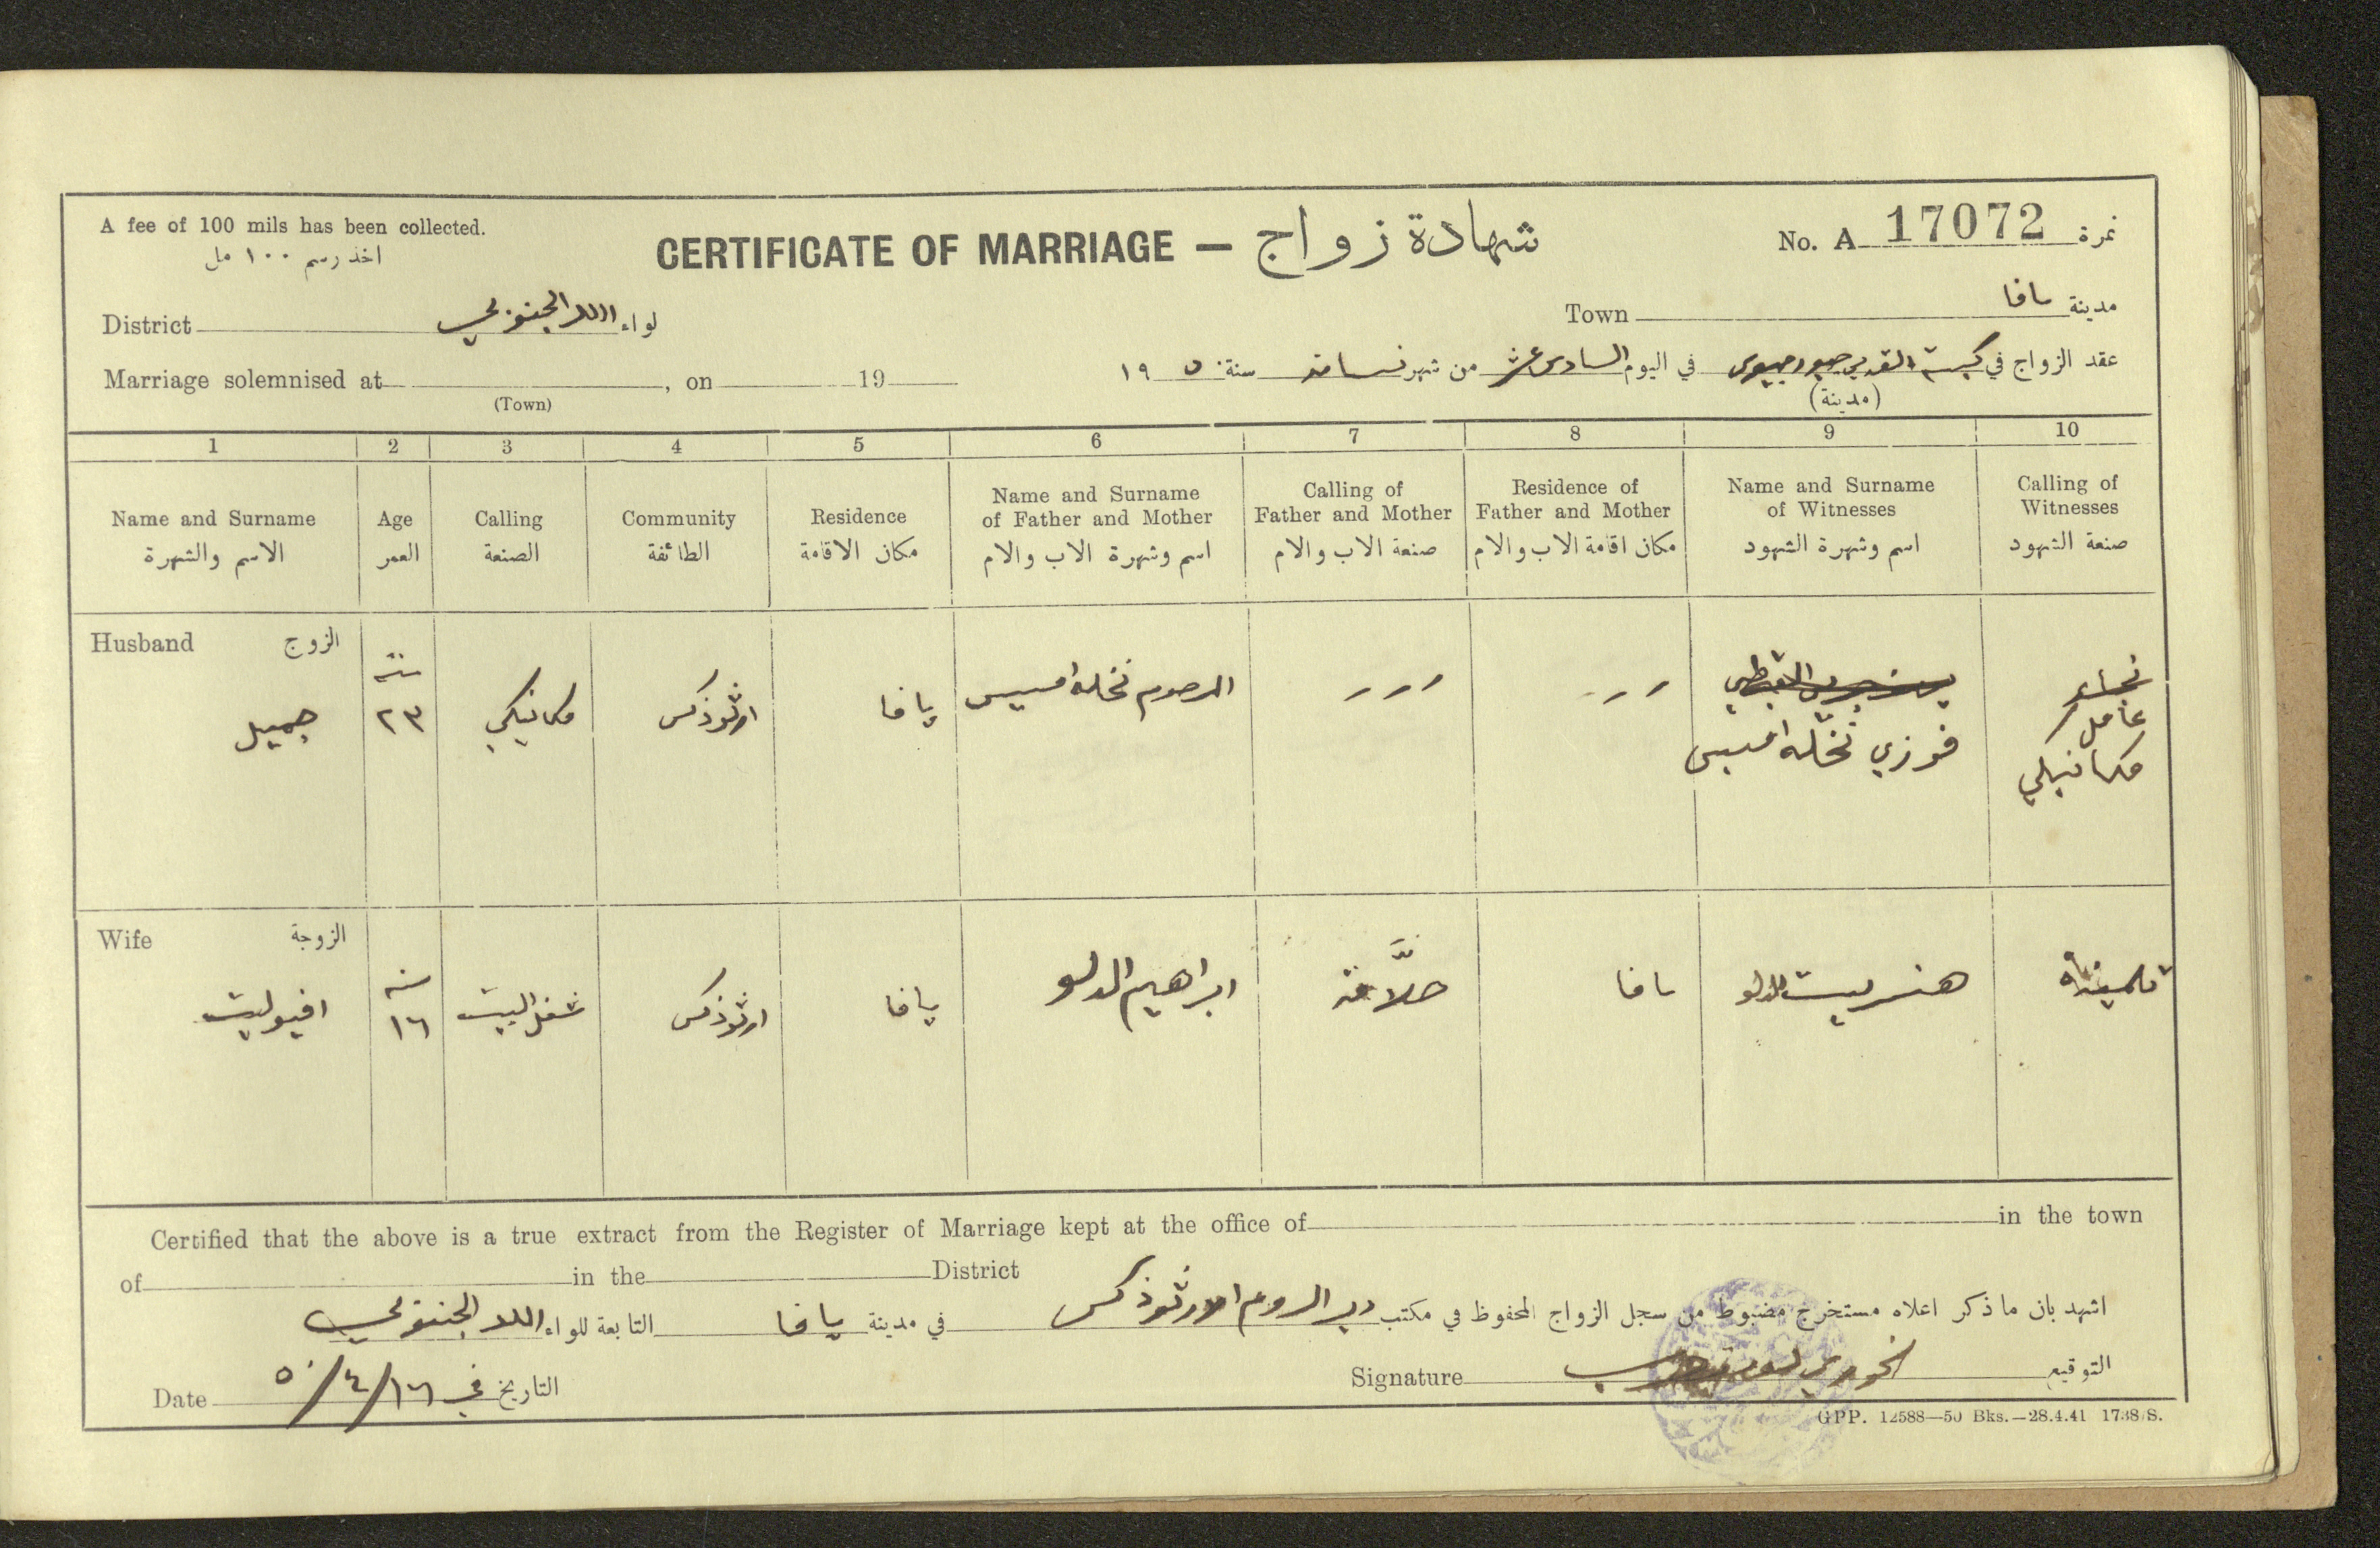 A fee of 100 mils has been collected.
اخذ رسم ١٠٠ مل
CERTIFICATE OF MARRIAGE — شهادة زواج
No. A 17072 نمرة
District لواء اللد الجنوبي
Town مدينة يافا
Marriage solemnised at , on 19
(Town)
عقد الزواج في كنيسة القديس جيورجيوس في اليوم السادس عشر من شهر نيسان سنة ١٩٥٠
(مدينة)
1 2 3 4 5 6 7 8 9 10
Name and Surname الاسم والشهرة
Age العمر
Calling الصنعة
Community الطائفة
Residence مكان الاقامة
Name and Surname of Father and Mother اسم وشهرة الاب والام
Calling of Father and Mother صنعة الاب والام
Residence of Father and Mother مكان اقامة الاب والام
Name and Surname of Witnesses اسم وشهرة الشهود
Calling of Witnesses صنعة الشهود
Husband الزوج
جميل
سنة ٢٣
مكانيكي
ارثوذكس
يافا
المرحوم نخله
فوزي نخله
عامل
مكانيكي
Wife الزوجة
افيوليت
سنة ١٦
شغل البيت
ارثوذكس
يافا
ابراهيم الدلو
يافا
هنرييت الدلو
تلميذة
Certified that the above is a true extract from the Register of Marriage kept at the office of in the town
of in the District
اشهد بان ما ذكر اعلاه مستخرج مضبوط من سجل الزواج المحفوظ في مكتب دير الروم الارثوذكس في مدينة يافا التابعة للواء اللد الجنوبي
Signature الخوري التوقيع
Date التاريخ في ١٦/٤/٥٠
GPP. 12588—50 Bks.—28.4.41 1738/S.